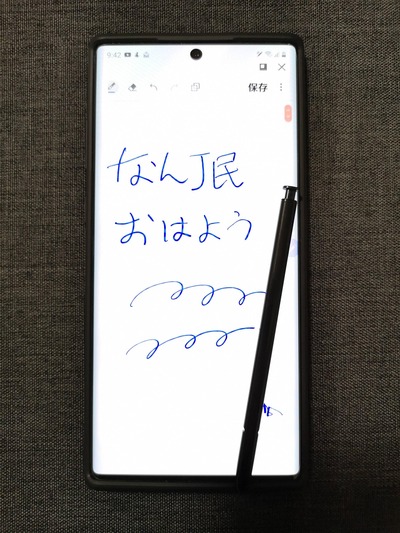 9:42
保存
なんJ民
おはよう